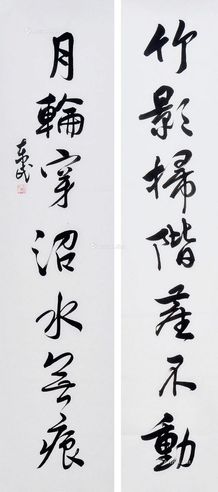 竹影掃階塵不動
月輪穿沼水無痕